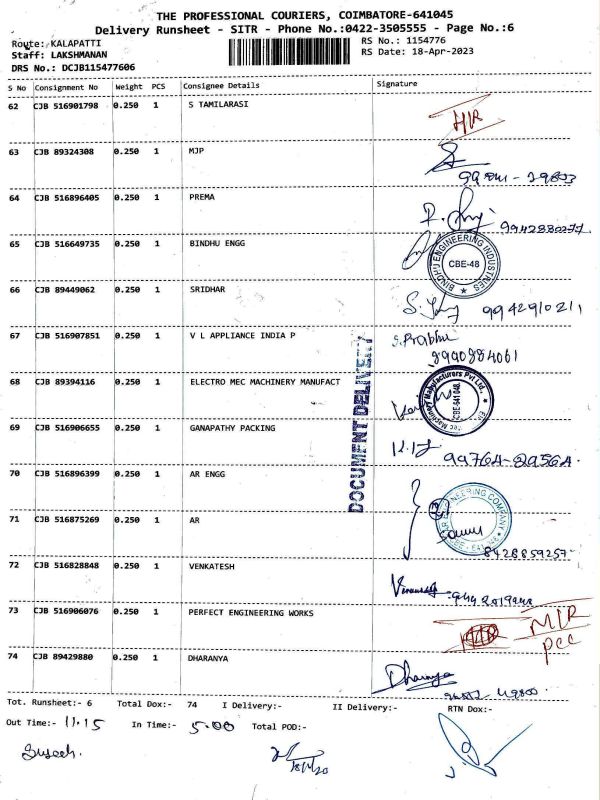 THE PROFESSIONAL COURIERS, COIMBATORE-641045
Delivery Runsheet - SITR - Phone No.:0422-3505555 - Page No.:6
Route: KALAPATTI
RS No.: 1154776
Staff: LAKSHMANAN
RS Date: 18-Apr-2023
DRS No.: DCJB115477606
S No Consignment No Weight PCS Consignee Details Signature
62 CJB 516901798 0.250 1 S TAMILARASI
63 CJB 89324308 0.250 1 MJP
64 CJB 516896405 0.250 1 PREMA
65 CJB 516649735 0.250 1 BINDHU ENGG
BINDHU ENGINEERING INDUSTRIES
CBE-48
66 CJB 89449062 0.250 1 SRIDHAR
9942910211
67 CJB 516907851 0.250 1 V L APPLIANCE INDIA P S.Prabhu
8990884061
DOCUMENT DELIVERY
68 CJB 89394116 0.250 1 ELECTRO MEC MACHINERY MANUFACT
Machinery Manufacturers Pvt Ltd.,
CBE-641 048.
69 CJB 516906655 0.250 1 GANAPATHY PACKING
99764-29564.
70 CJB 516896399 0.250 1 AR ENGG
ENGINEERING COMPANY
71 CJB 516875269 0.250 1 AR
8428859257
72 CJB 516828848 0.250 1 VENKATESH
73 CJB 516906076 0.250 1 PERFECT ENGINEERING WORKS
MIR
pcc
74 CJB 89429880 0.250 1 DHARANYA
Dharanya
Tot. Runsheet:- 6 Total Dox:- 74 I Delivery:- II Delivery:- RTN Dox:-
Out Time:- 11.15 In Time:- 5.00 Total POD:-